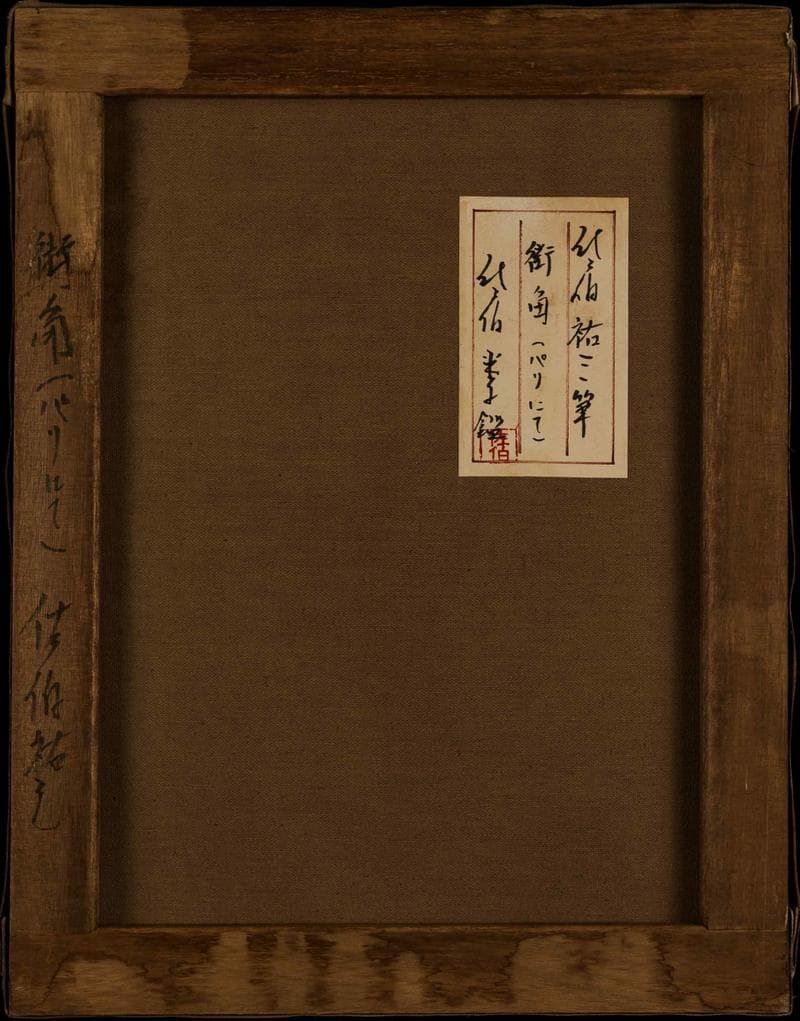 佐伯祐三筆
街角（パリにて）
佐伯米子鑑
佐伯
街角（パリにて） 佐伯祐三